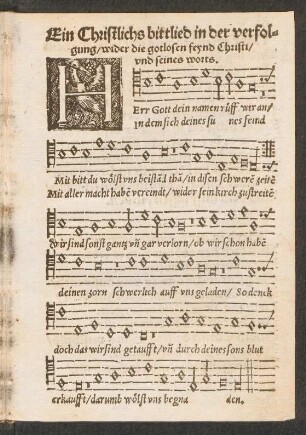 Ein Christlichs bittlied in der verfol-
gung/wider die gotlosen feynd Christi/
vnd seines worts.
HErr Gott dein namen rüff wir an/
in dem sich deines su nes feind
Mit bitt du wölst vns beistād thā/in disen schwerē zeitē
Mit aller macht habē vereindt/wider sein kirch zustreitē
Wir sind sonst gantz vñ gar verlorn/ob wir schon habē
deinen zorn schwerlich auff vns geladen/ So denck
doch das wir sind getaufft/vñ durch deines sons blut
erkaufft/darumb wölst vns begna den.